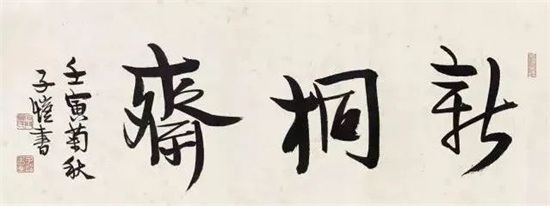 新桐齋
壬寅菊秋
子愷書